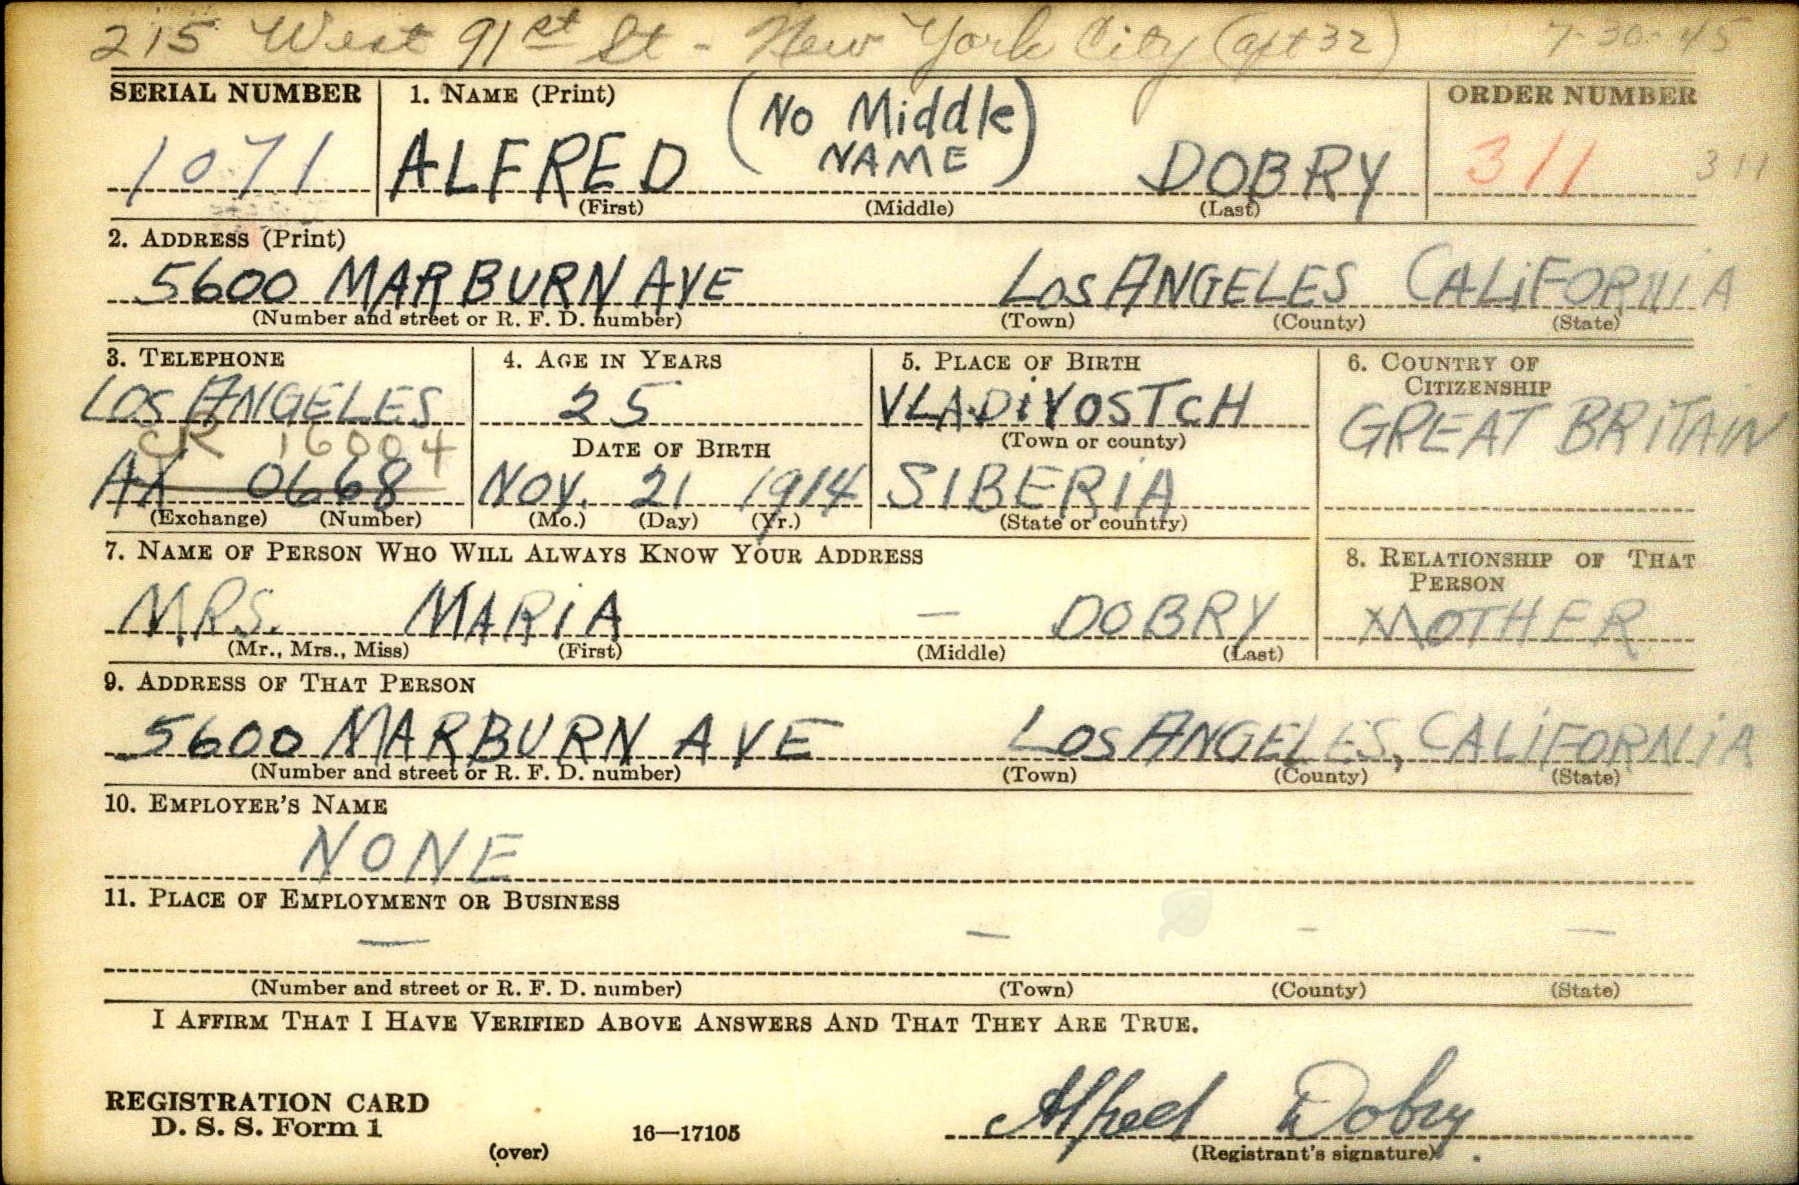 215 West 91st St - New York City (apt 32) 7-30-45
SERIAL NUMBER 1. NAME (Print) ORDER NUMBER
1071 ALFRED (No Middle NAME) DOBRY 311 311
(First) (Middle) (Last)
2. ADDRESS (Print)
5600 MARBURN AVE LOS ANGELES CALIFORNIA
(Number and street or R. F. D. number) (Town) (County) (State)
3. TELEPHONE 4. AGE IN YEARS 5. PLACE OF BIRTH 6. COUNTRY OF CITIZENSHIP
LOS ANGELES 25 VLADIVOSTCH GREAT BRITAIN
CR 16004 DATE OF BIRTH (Town or county)
AX 0668 NOV. 21 1914 SIBERIA
(Exchange) (Number) (Mo.) (Day) (Yr.) (State or country)
7. NAME OF PERSON WHO WILL ALWAYS KNOW YOUR ADDRESS 8. RELATIONSHIP OF THAT PERSON
MRS. MARIA — DOBRY MOTHER
(Mr., Mrs., Miss) (First) (Middle) (Last)
9. ADDRESS OF THAT PERSON
5600 MARBURN AVE LOS ANGELES, CALIFORNIA
(Number and street or R. F. D. number) (Town) (County) (State)
10. EMPLOYER'S NAME
NONE
11. PLACE OF EMPLOYMENT OR BUSINESS
— — — —
(Number and street or R. F. D. number) (Town) (County) (State)
I AFFIRM THAT I HAVE VERIFIED ABOVE ANSWERS AND THAT THEY ARE TRUE.
REGISTRATION CARD
D. S. S. Form 1 16—17105 Alfred Dobry
(over) (Registrant's signature)